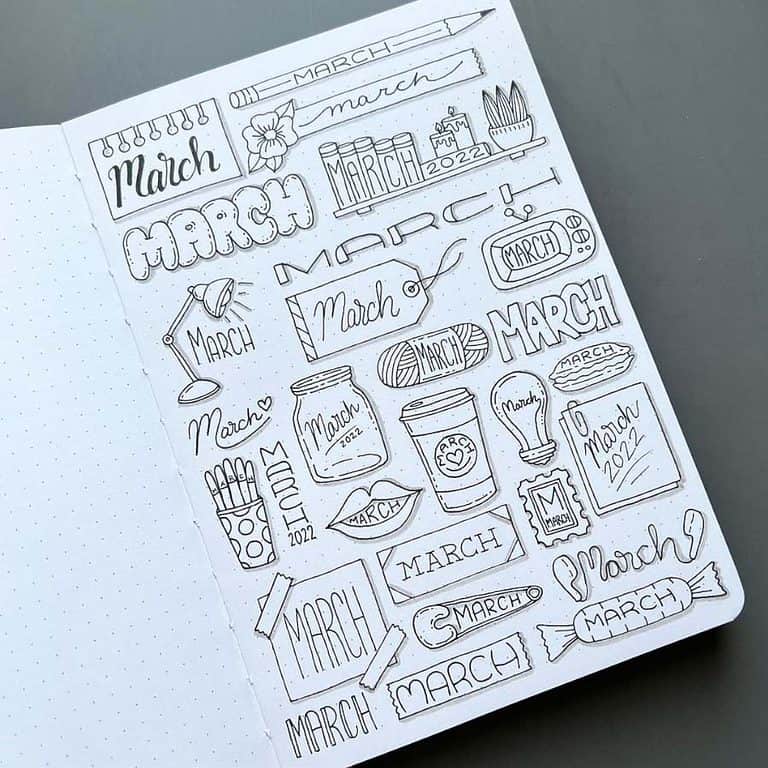 MARCH
march
March
MARCH
2022
MARCH
MARCH
MARCH
March
MARCH
MARCH
MARCH
MARCH
March
March
2022
March
March
2022
MARCH
MARCH
2022
MARCH
MARCH
M
MARCH
MARCH
March
MARCH
MARCH
MARCH
MARCH
MARCH